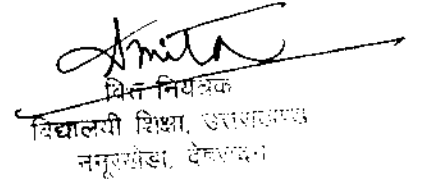 Amita
वित्त नियंत्रक
विद्यालयी शिक्षा, उत्तराखण्ड
ननूरखेडा, देहरादून।